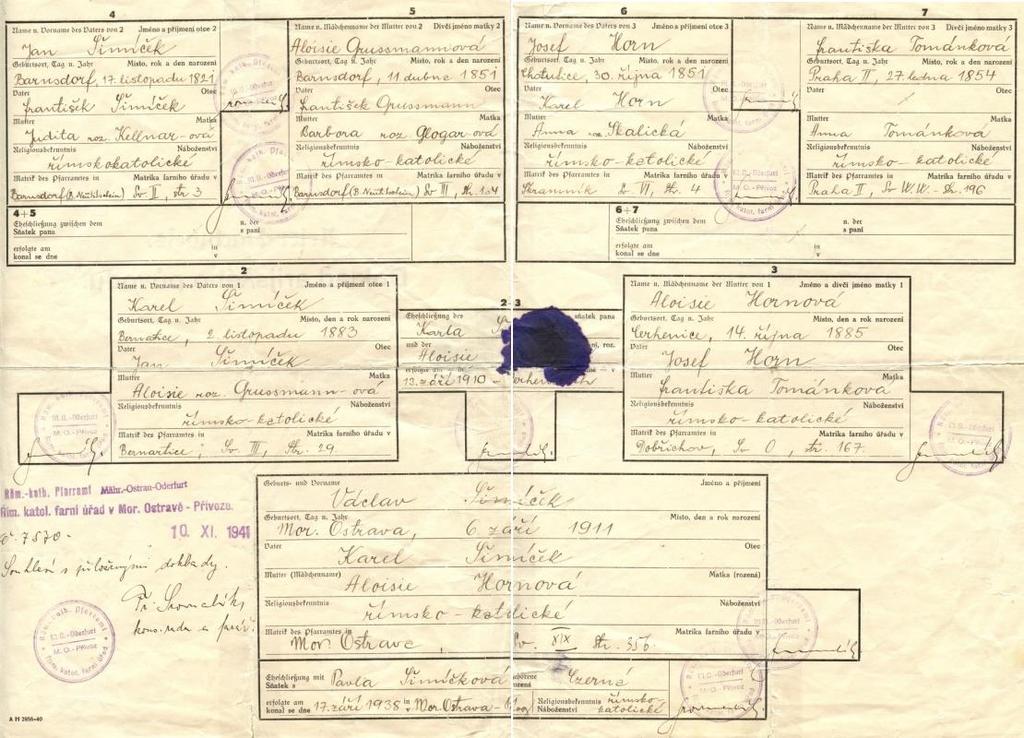 4
Name u. Vorname des Vaters von 2 Jméno a příjmení otce 2
Jan Šimíček
Geburtsort, Tag u. Jahr Místo, rok a den narození
Barnsdorf, 17. listopadu 1821
Vater Otec
František Šimíček
Mutter Matka
Judita roz. Kellnar-ová
Religionsbekenntnis Náboženství
římskokatolické
Matrik des Pfarramtes in Matrika farního úřadu v
Barnsdorf Sv II, str. 3
5
Name u. Mädchenname der Mutter von 2 Dívčí jméno matky 2
Aloisie Grussmannová
Geburtsort, Tag u. Jahr Místo, rok a den narození
Barnsdorf, 11 dubna 1851
Vater Otec
František Grussmann
Mutter Matka
Barbora roz. Glogar-ová
Religionsbekenntnis Náboženství
římsko-katolické
Matrik des Pfarramtes in Matrika farního úřadu v
Barnsdorf Sv III, str. 104
6
Name u. Vorname des Vaters von 3 Jméno a příjmení otce 3
Josef Horn
Geburtsort, Tag u. Jahr Místo, rok a den narození
Chotutice, 30. října 1851
Vater Otec
Karel Horn
Mutter Matka
Anna roz. Skalická
Religionsbekenntnis Náboženství
římsko-katolické
Matrik des Pfarramtes in Matrika farního úřadu v
Sv VI, str. 4
7
Name u. Mädchenname der Mutter von 3 Dívčí jméno matky 3
Františka Tománková
Geburtsort, Tag u. Jahr Místo, rok a den narození
Praha II, 27. ledna 1854
Vater Otec
Mutter Matka
Anna Tománková
Religionsbekenntnis Náboženství
římsko-katolické
Matrik des Pfarramtes in Matrika farního úřadu v
Praha II, Sv W.W. - Str. 196
4+5
Eheschließung zwischen dem n. der
Sňatek pana s paní
erfolgte am in
konal se dne v
6+7
Eheschließung zwischen dem n. der
Sňatek pana s paní
erfolgte am in
konal se dne v
2
Name u. Vorname des Vaters von 1 Jméno a příjmení otce 1
Karel Šimíček
Geburtsort, Tag u. Jahr Místo, den a rok narození
Bernatice, 2. listopadu 1883
Vater Otec
Jan Šimíček
Mutter Matka
Aloisie roz. Grussmann-ová
Religionsbekenntnis Náboženství
římsko-katolické
Matrik des Pfarramtes in Matrika farního úřadu v
Bernartice, Sv III, Str. 29
2-3
Eheschließung des Sňatek pana
Karla
und der roz.
Aloisie
erfolgte am
13. září 1910
3
Name u. Mädchenname der Mutter von 1 Jméno a dívčí jméno matky 1
Aloisie Hornová
Geburtsort, Tag u. Jahr Místo, den a rok narození
Cerhenice, 14. října 1885
Vater Otec
Josef Horn
Mutter Matka
Františka Tománková
Religionsbekenntnis Náboženství
římsko-katolické
Matrik des Pfarramtes in Matrika farního úřadu v
Dobřichov, Sv O, str. 167.
Röm.-kath. Pfarramt Mähr.-Ostrau-Oderfurt
Řím. katol. farní úřad v Mor. Ostravě - Přívoze.
10. XI. 1941
č. 7570.
Souhlasí s přiloženými doklady.
kons. rada a farář
Röm.-kath. Pfarramt
M.O.-Oderfurt
M.O.-Přívoz
řím. katol. farní úřad
Geburts- und Vorname Jméno a příjmení
Václav Šimíček
Geburtsort, Tag u. Jahr Místo, den a rok narození
Mor. Ostrava, 6. září 1911
Vater Otec
Karel Šimíček
Mutter (Mädchenname) Matka (rozená)
Aloisie Hornová
Religionsbekenntnis Náboženství
římsko-katolické
Matrik des Pfarramtes in Matrika farního úřadu v
Mor. Ostrava, Sv. XIX str. 356.
Eheschließung mit
Sňatek s Pavla Šimíčková Czerná
erfolgte am in Religionsbekenntnis
konal se dne 17. září 1938 v Mor. Ostrava Náboženství římsko-katolické
A H 2856-40